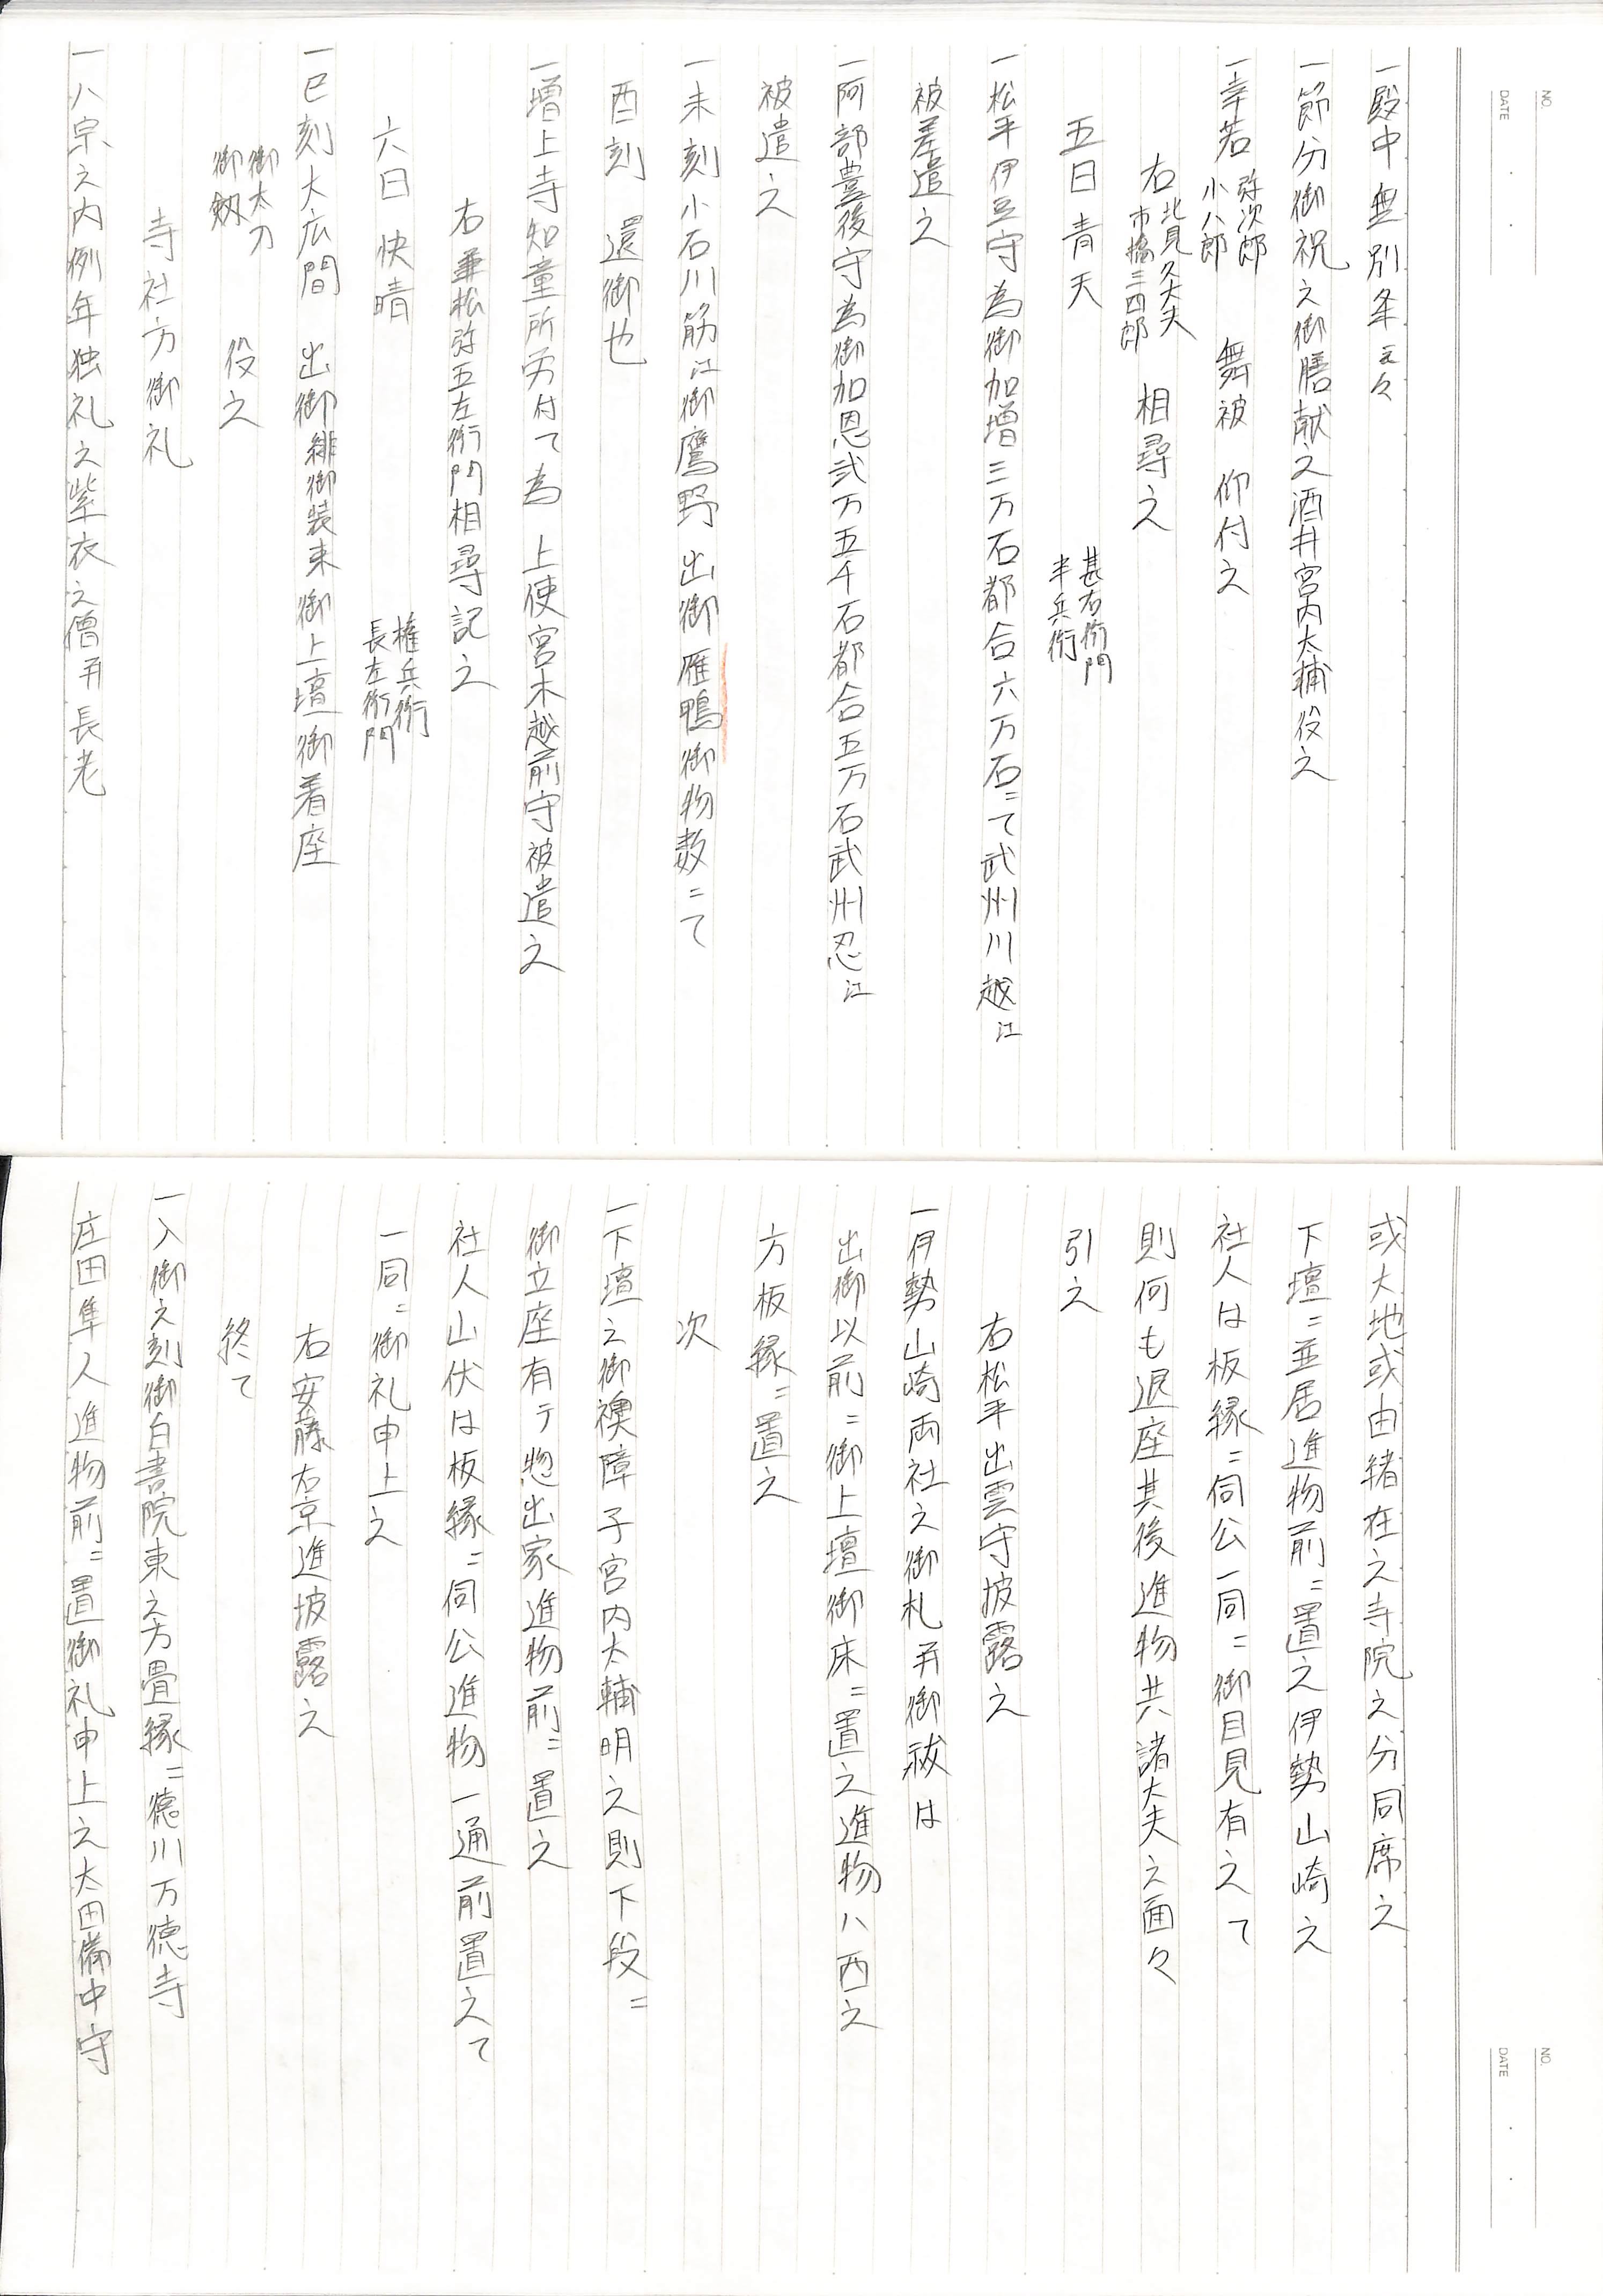 NO.
DATE
一殿中無別条云々
一節分御祝之御膳献之酒井宮内大輔役之
一幸若 弥次郎 小八郎 舞被 仰付之
右 北見久大夫 市橋三四郎 相尋之
五日 青天 甚右衛門 半兵衛
一松平伊豆守為御加増三万石都合六万石ニて武州川越江
被差遣之
一阿部豊後守為御加恩弐万五千石都合五万石武州忍江
被遣之
一未刻小石川筋江御鷹野 出御雁鴨御物数ニて
酉刻 還御也
一増上寺知童所労付て為 上使宮木越前守被遣之
右兼松弥五左衛門相尋記之
六日 快晴 権兵衛 長左衛門
一巳刻大広間 出御緋御装束御上壇御着座
御太刀 御剱 役之
寺社方御礼
一八宗之内例年独礼之紫衣之僧并長老
NO.
DATE
或大地或由緒在之寺院之分同席之
下壇ニ並居進物前ニ置之伊勢山崎之
社人は板縁ニ伺公一同ニ御目見有之て
則何も退座其後進物共諸大夫之面々
引之
右松平出雲守披露之
一伊勢山崎両社之御札并御祓は
出御以前ニ御上壇御床ニ置之進物ハ西之
方板縁ニ置之
次
一下壇之御襖障子宮内大輔明之則下段ニ
御立座有テ惣出家進物前ニ置之
社人山伏は板縁ニ伺公進物一通前置之て
一同ニ御礼申上之
右安藤右京進披露之
終て
一入御之刻御白書院東之方畳縁ニ徳川万徳寺
庄田隼人進物前ニ置御礼申上之太田備中守